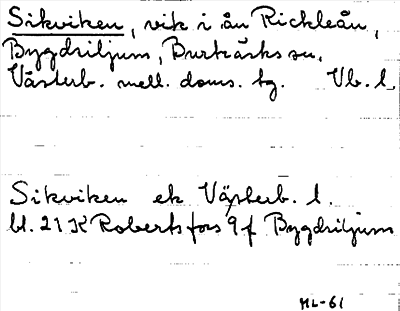 Sikviken, vik i ån Rickleån,
Bygdsiljum, Burträsks sn,
Västerb. mell. doms. tg. Vb. l.
Sikviken ek Västerb. l.
bl. 21 K Robertsfors 9 f Bygdsiljum
ML-61